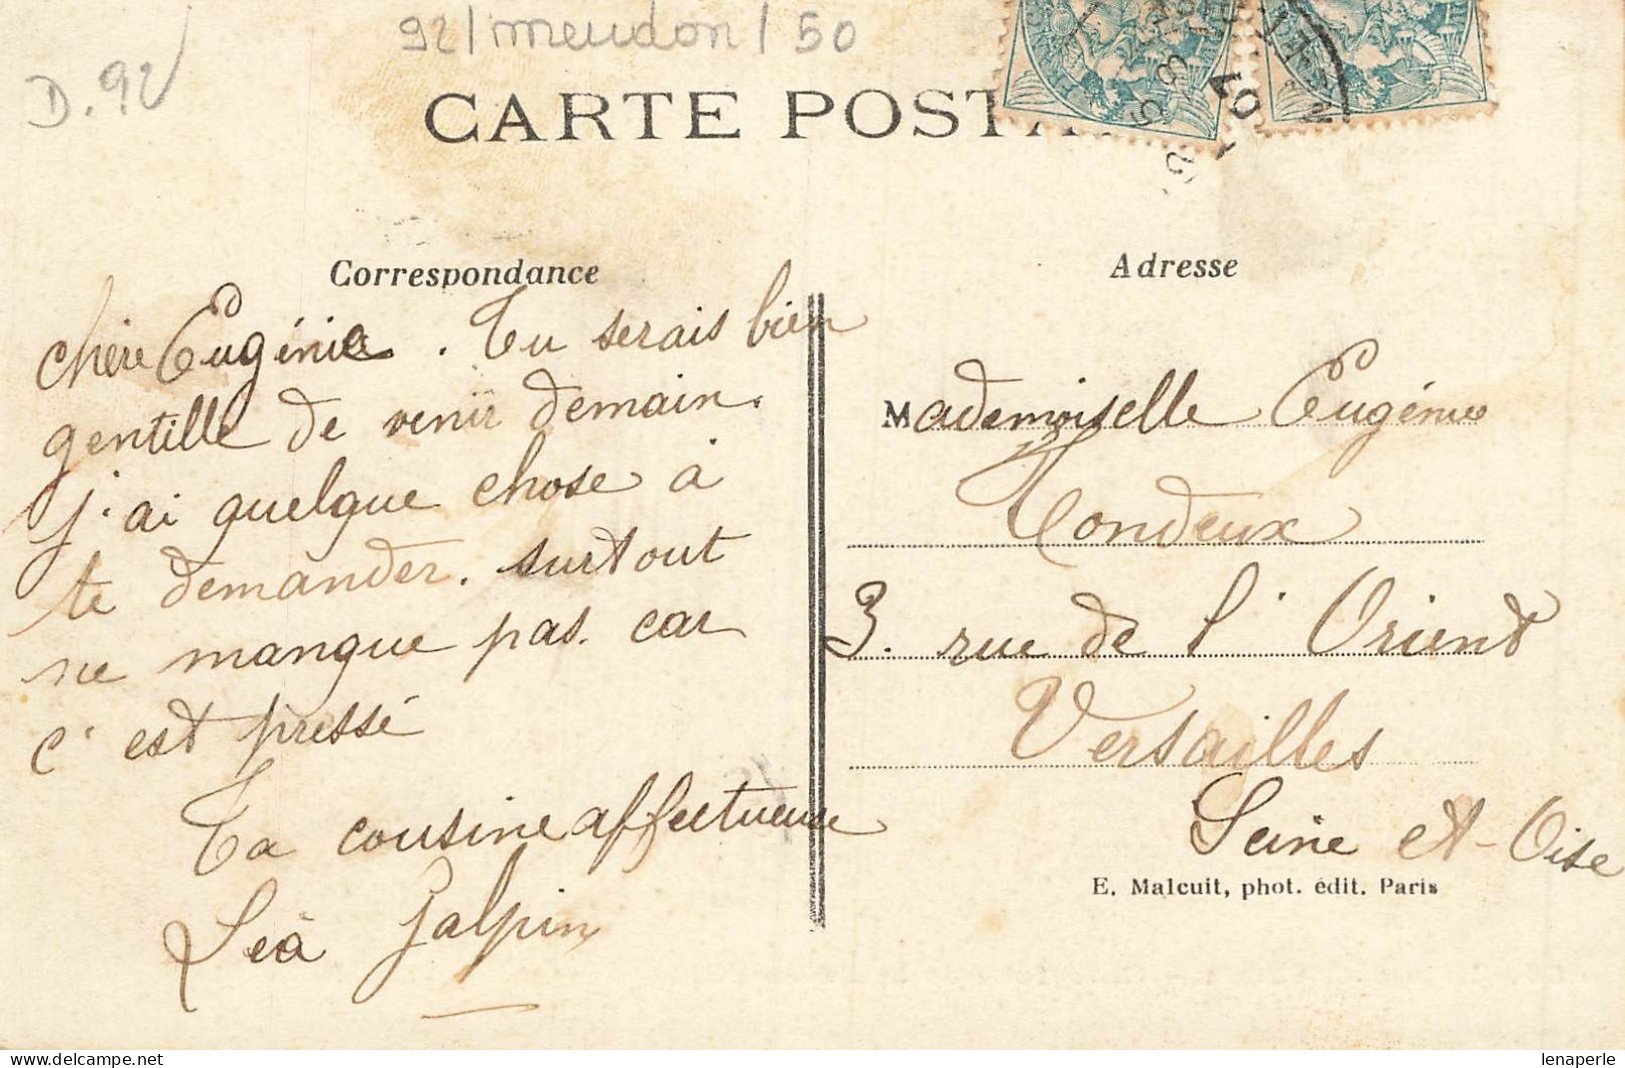 92/meudon/50
D.92
CARTE POSTA
Correspondance
chère Eugénie. Tu serais bien
gentille de venir demain.
j'ai quelque chose à
te demander. surtout
ne manque pas. car
c'est pressé
Ta cousine affectueuse
Léa Galpin
Adresse
Mademoiselle Eugénie
Tondeux
3. rue de l'Orient
Versailles
Seine et-Oise
E. Malcuit, phot. édit. Paris
lenaperle